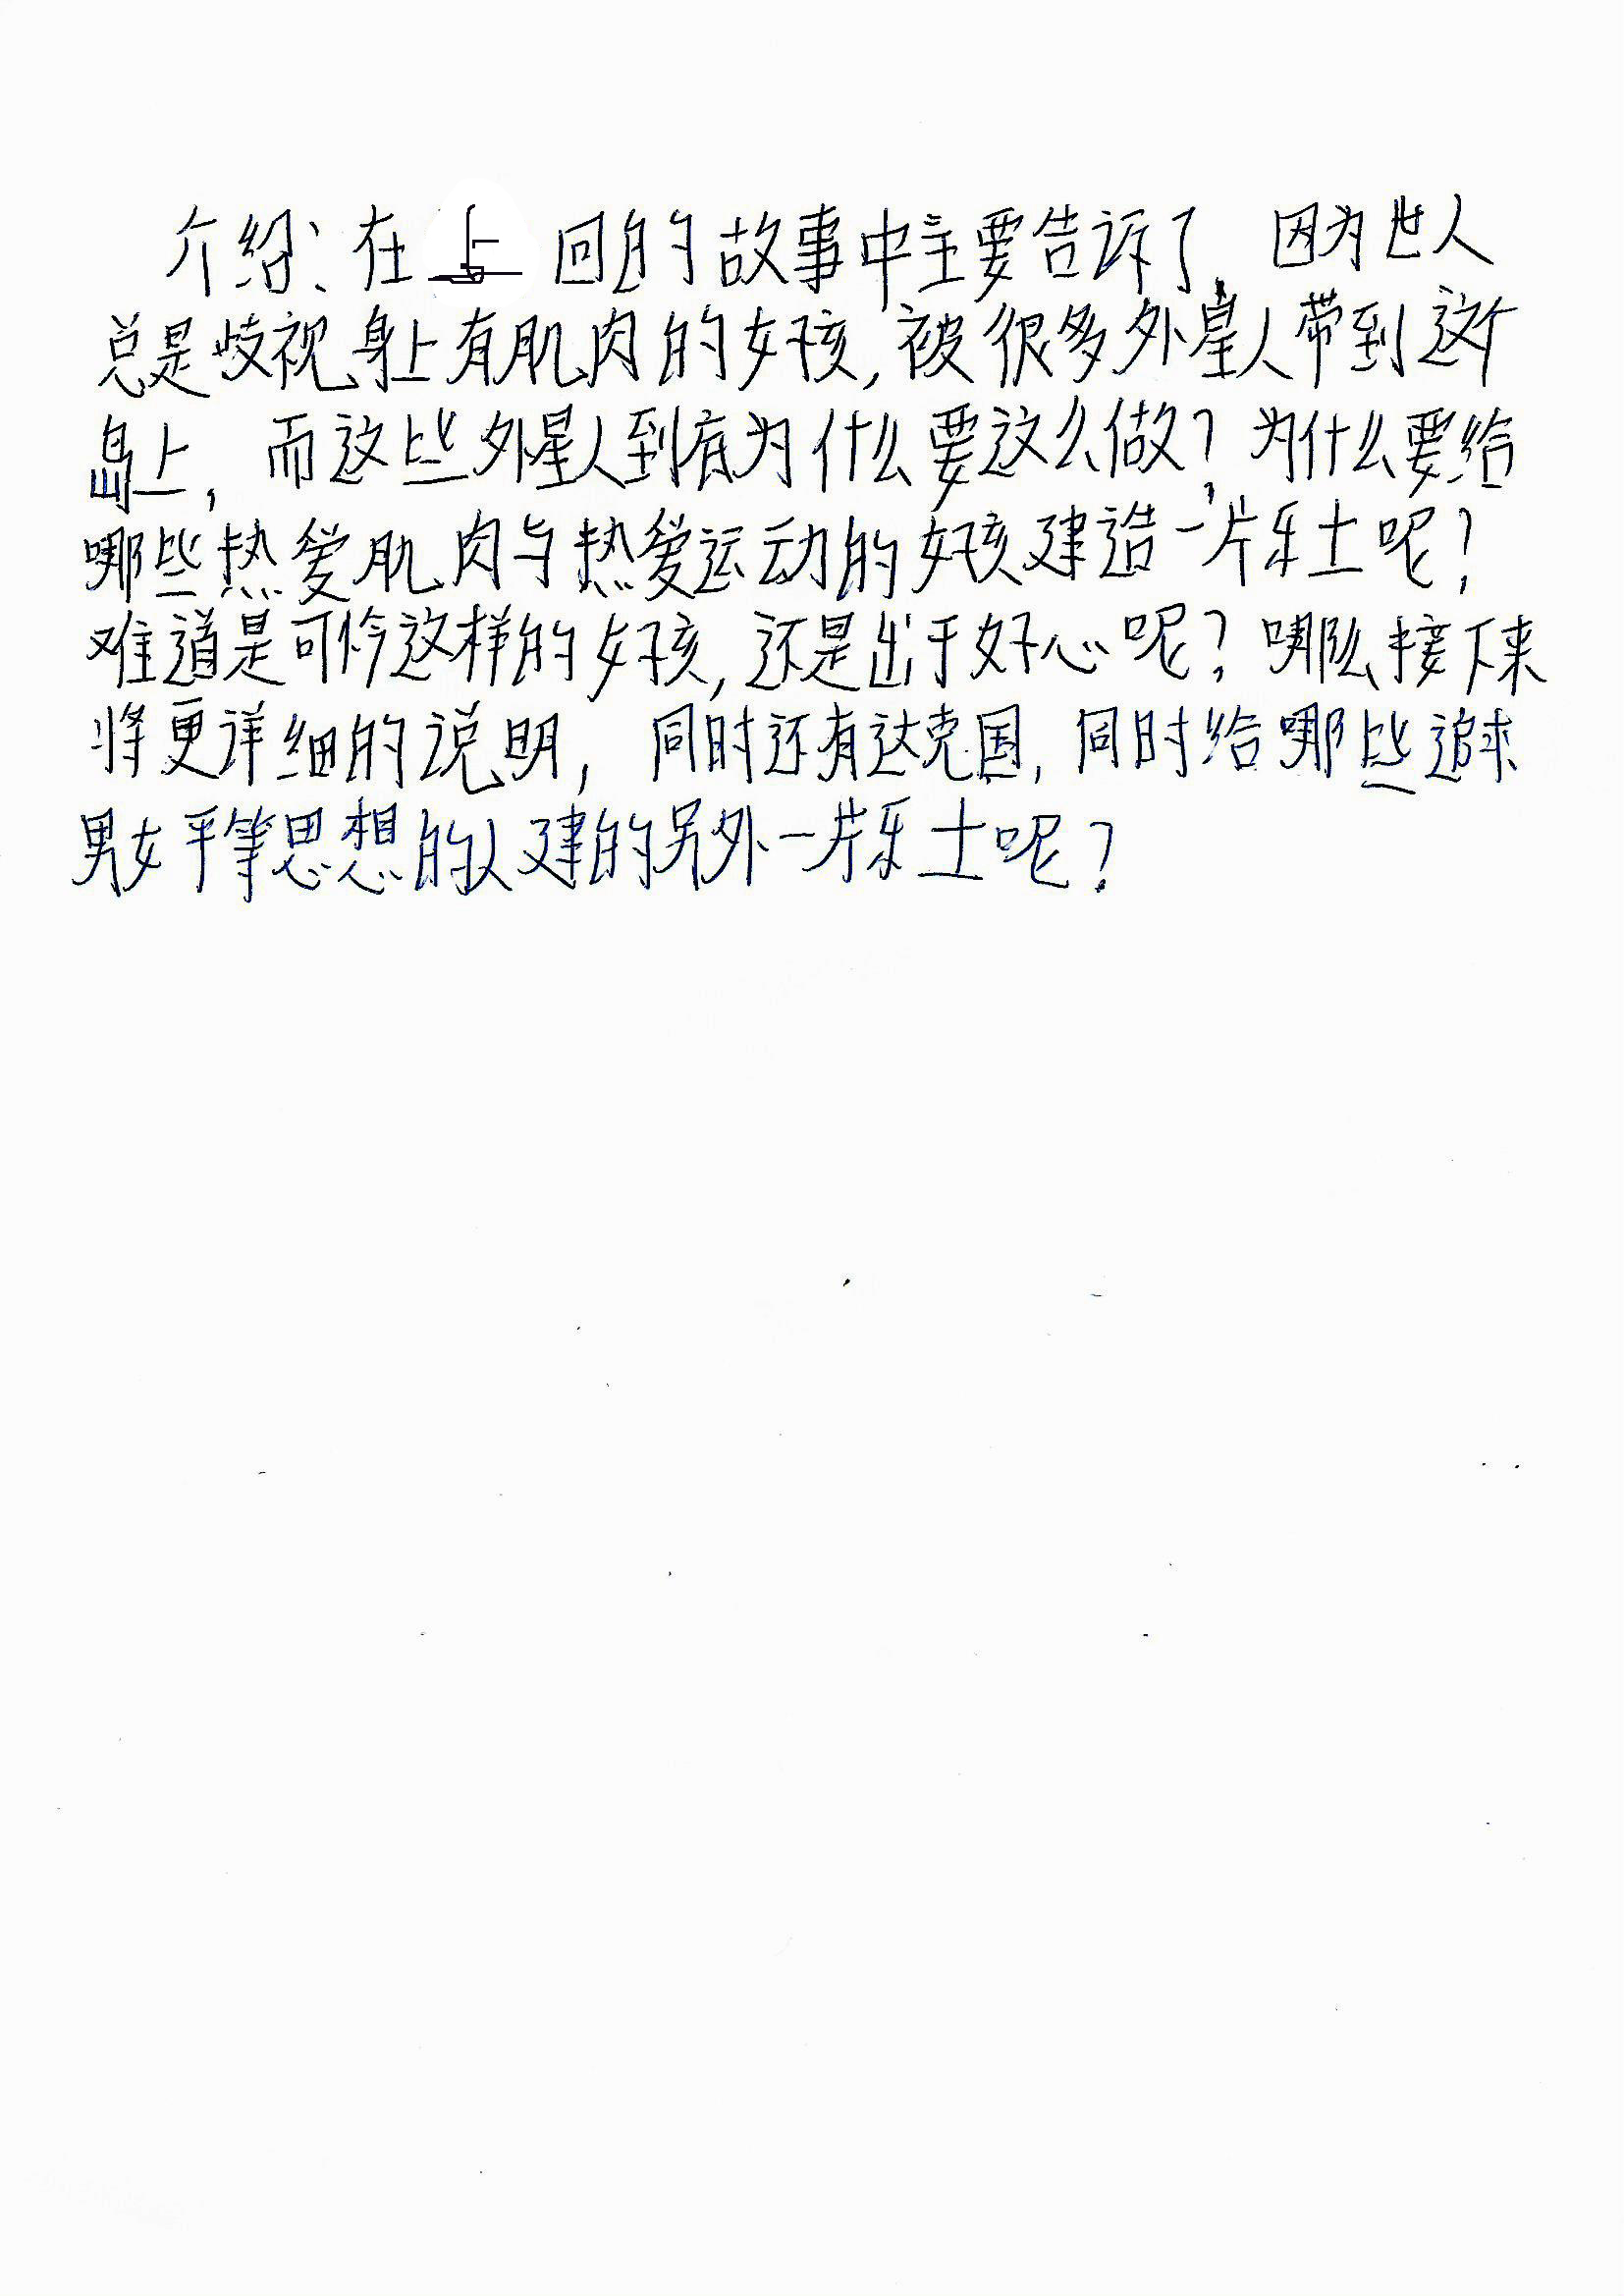 介绍：在上回的故事中主要告诉了，因为世人
总是歧视身上有肌肉的女孩，被很多外星人带到这个
岛上，而这些外星人到底为什么要这么做？为什么要给
哪些热爱肌肉与热爱运动的女孩建造一片乐土呢？
难道是可怜这样的女孩，还是出于好心呢？哪么接下来
将更详细的说明，同时还有达克国，同时给哪些追求
男女平等思想的人建的另外一片乐土呢？